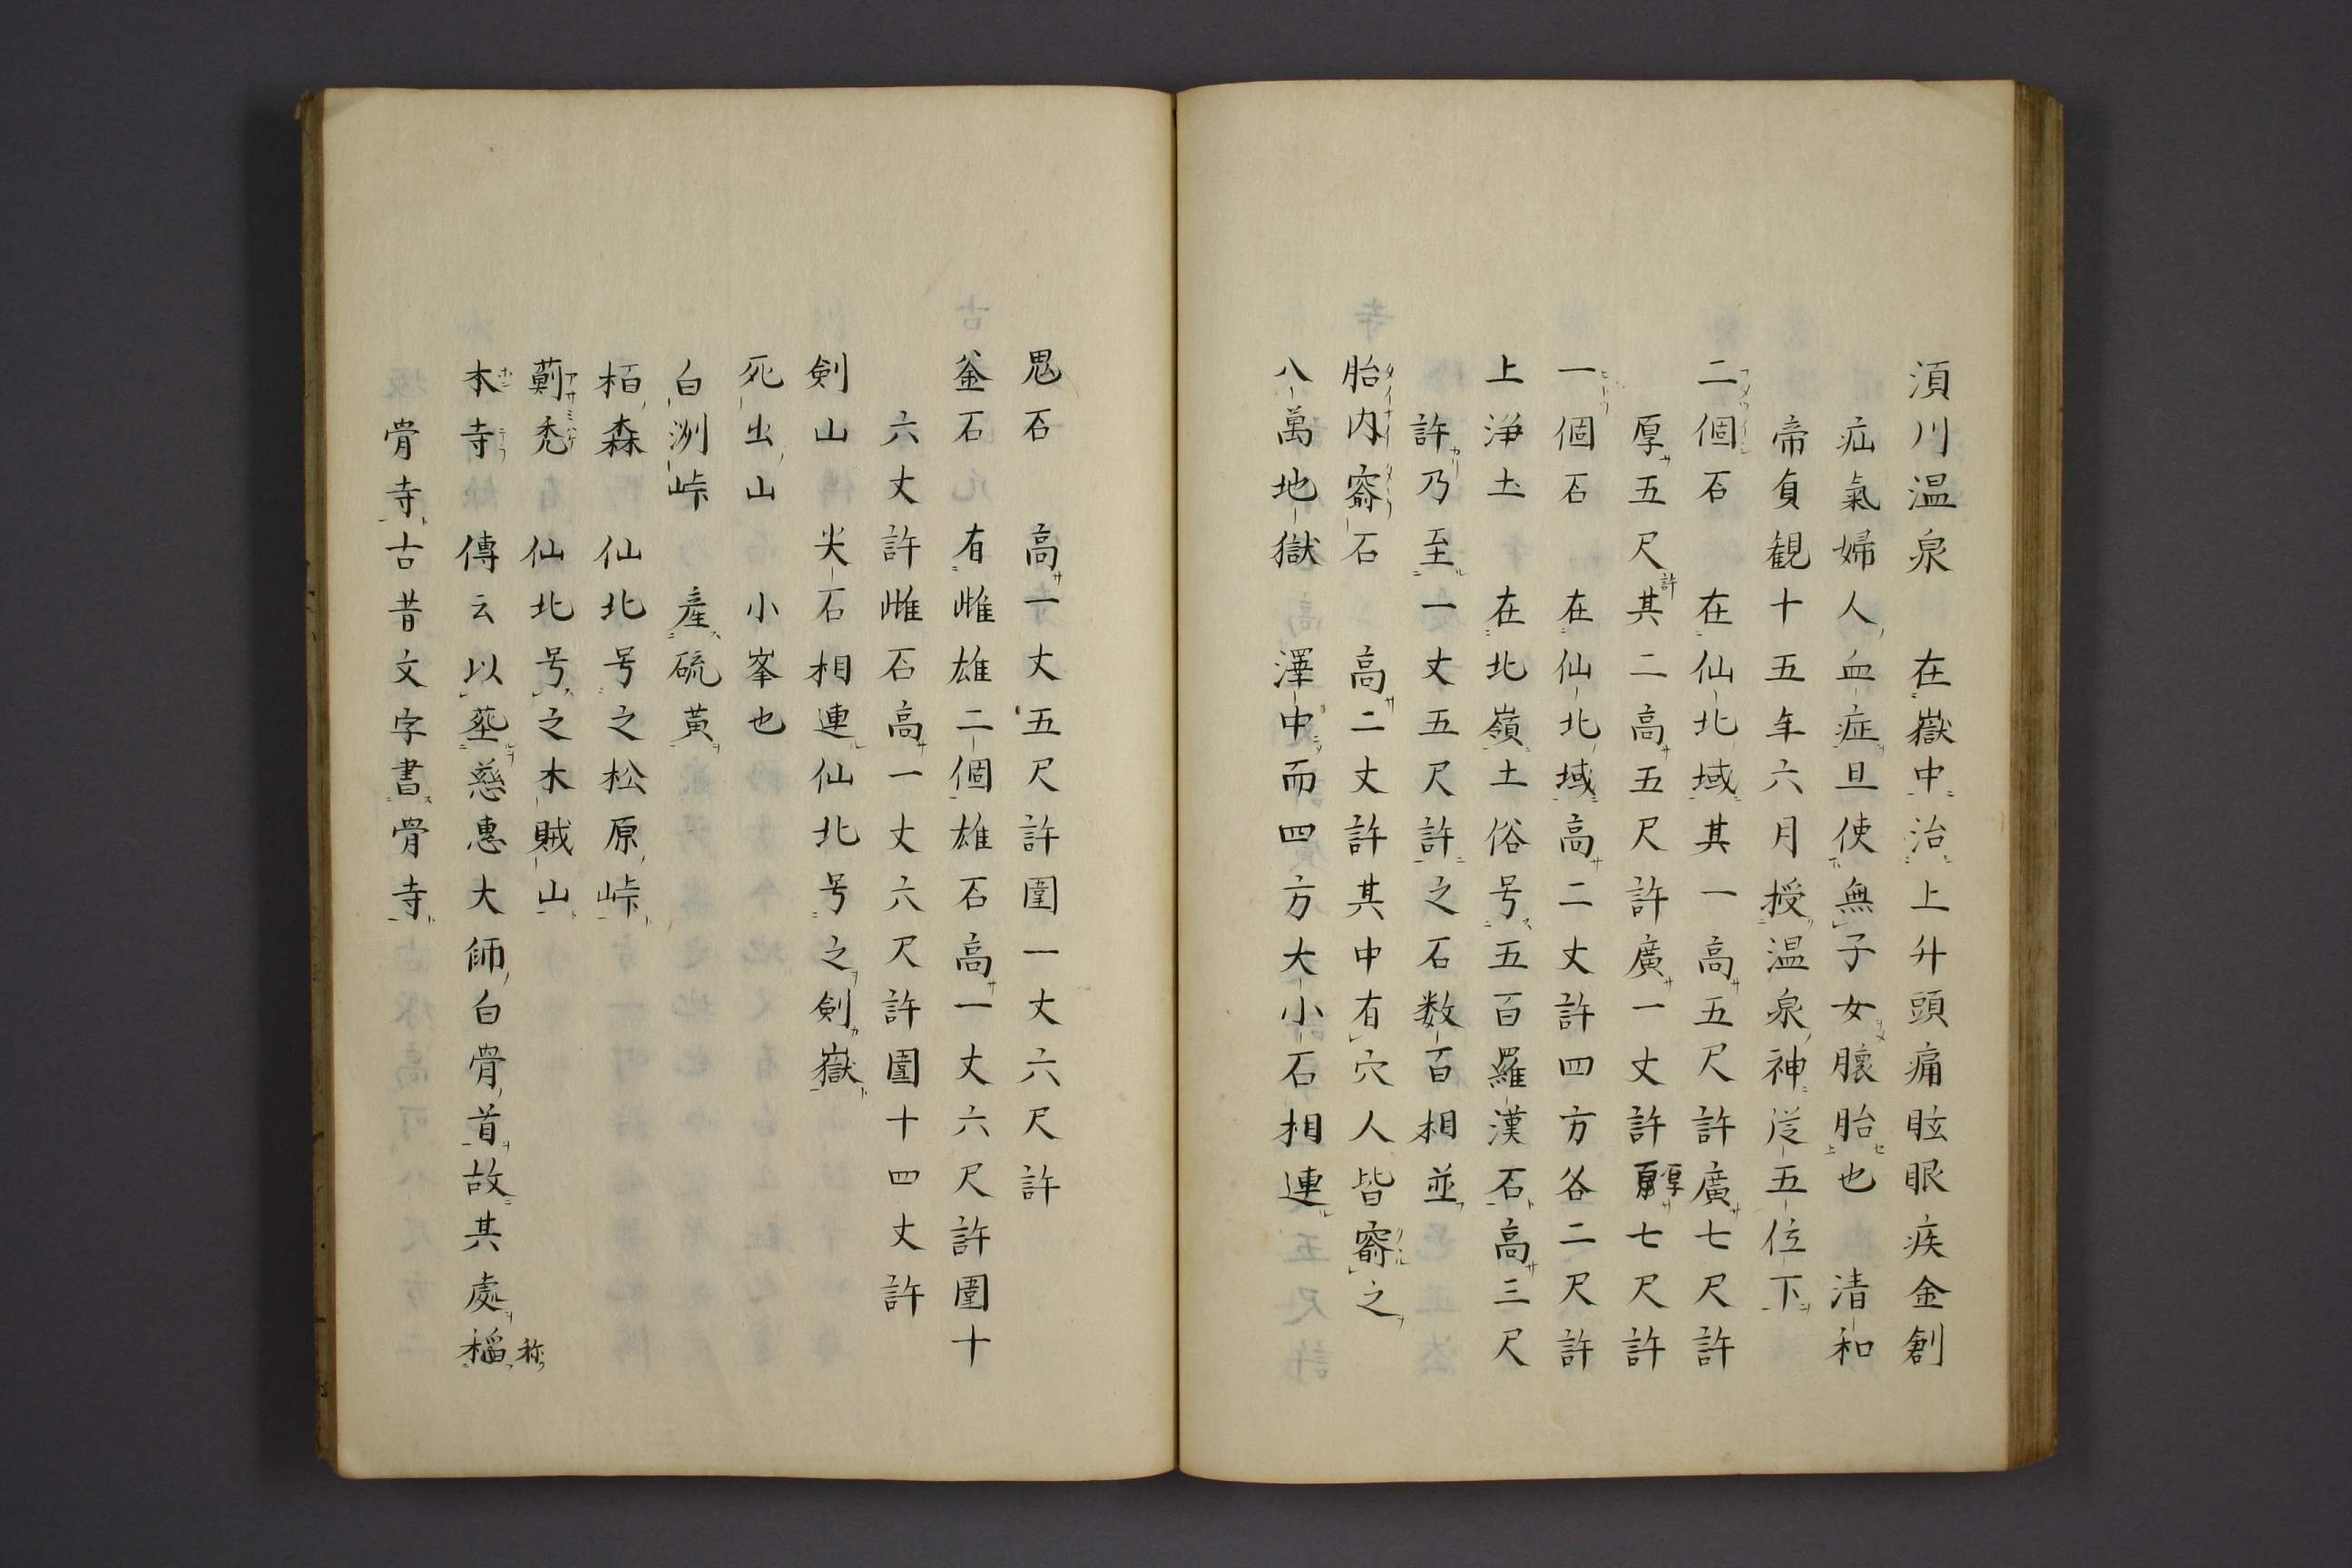 湏川温泉　在嶽中治上升頭痛眩眼疾金創
疝氣婦人血症且使無子女懷胎也　清和
帝貞観十五年六月授温泉神従五位下
二個石　在仙北域其一高五尺許廣七尺許
厚五尺許其二高五尺許廣一丈許厚七尺許
一個石　在仙北域高二丈許四方各二尺許
上淨土　在北嶺土俗号五百羅漢石高三尺
許乃至一丈五尺許之石数百相並
胎内窬石　高二丈許其中有穴人皆窬之
八萬地獄　澤中而四方大小石相連
鬼石　高一丈五尺許圍一丈六尺許
釜石　有雌雄二個雄石高一丈六尺許圍十
六丈許雌石高一丈六尺許圍十四丈許
剣山　尖石相連仙北号之剣嶽
死出山　小峯也
白洲峠　産硫黄
栢森　仙北号之松原峠
薊禿　仙北号之木賊山
本寺　傳云以埊慈惠大師白骨首故其處稱
骨寺古昔文字書骨寺